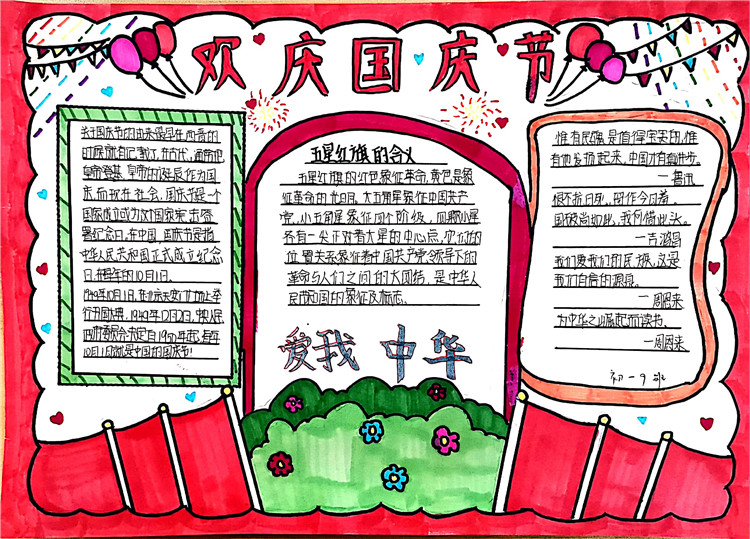 欢庆国庆节
关于国庆节的由来最早在西晋的
时候就有记载了,在古代,通常把
皇帝登基、皇帝的诞辰作为国
庆,而现在社会,国庆节是一个
国家成立或为这个国家
署纪念日,在中国,国庆节是指
中华人民共和国正式成立纪念
日,在每年的10月1日。
1949年10月1日,在北京天安门广场上举
行开国大典,1949年12月2日,中央人民
政府委员会决定自1950年起,每年
10月1日就是中国的国庆节!
五星红旗的含义
五星红旗的红色象征革命,黄色是象
征革命的光明。大五角星象征中国共产
党,小五角星象征四个阶级,四颗小星
各有一尖正对着大星的中心点,它们的
位置关系象征着中国共产党领导下的
革命与人们之间的大团结,是中华人
民共和国的象征及标志。
爱我中华
惟有民魂是值得宝贵的,惟
有他发扬起来,中国才有真进步。
—鲁迅
恨不抗日死,留作今日羞。
国破尚如此,我何惜此头。
—吉鸿昌
我们爱我们的民族,这是
我们自信的源泉。
—周恩来
为中华之崛起而读书。
—周恩来
初一9班